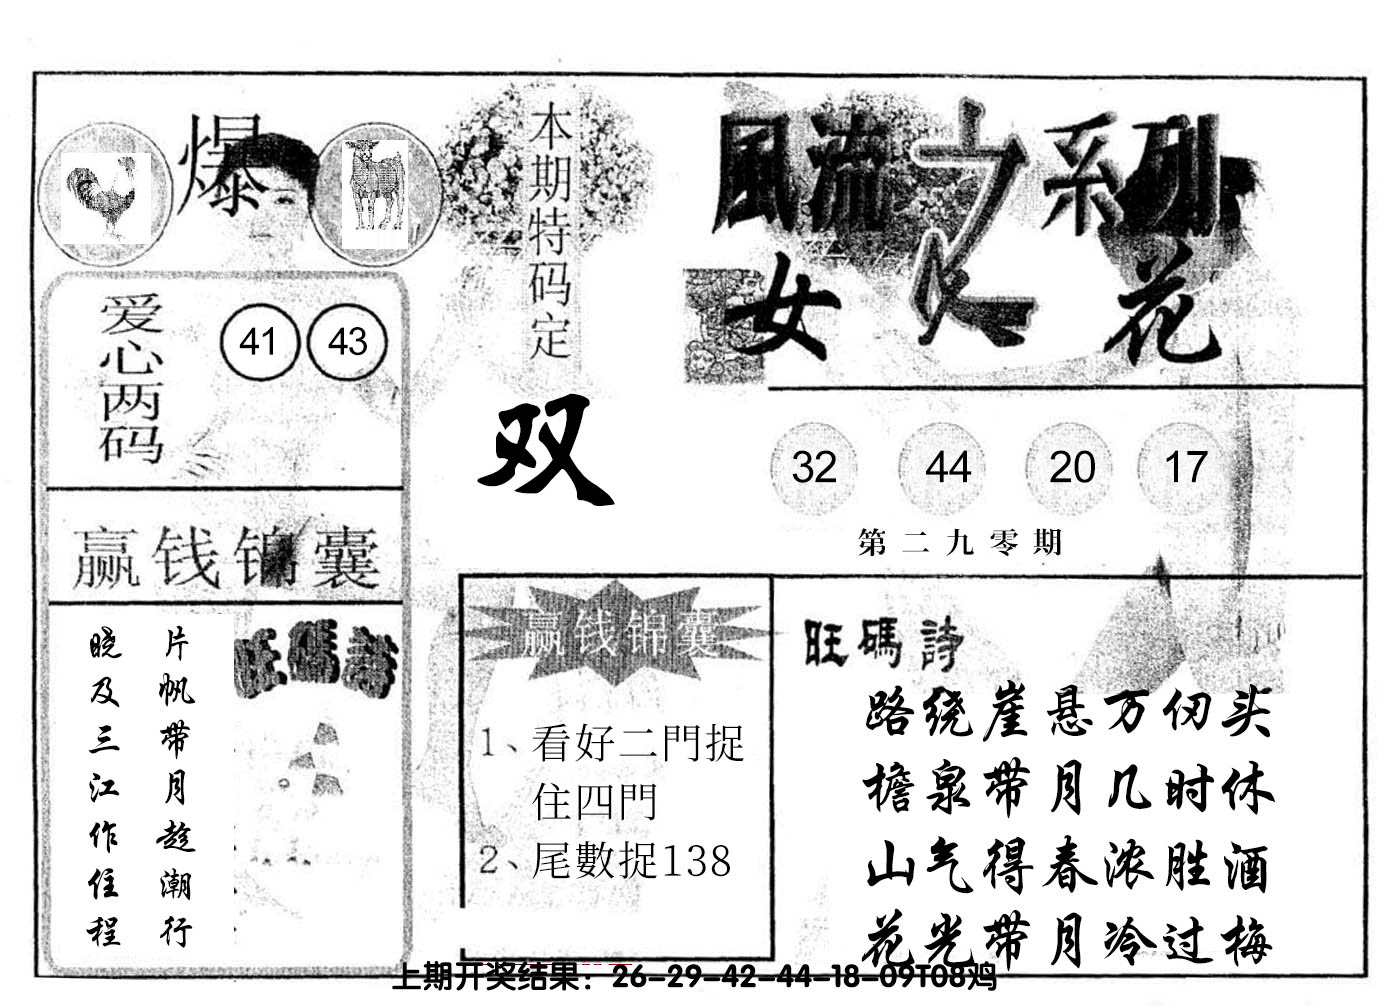 爆
本期特码定
双
風流之系列
女人花
爱心两码
41 43
32 44 20 17
第二九零期
赢钱锦囊
旺碼詩
片帆带月趁潮行
晓及三江作住程
赢钱锦囊
1、看好二門捉
住四門
2、尾數捉138
旺碼詩
路绕崖悬万仞头
檐泉带月几时休
山气得春浓胜酒
花光带月冷过梅
上期开奖结果：26-29-42-44-18-09T08鸡